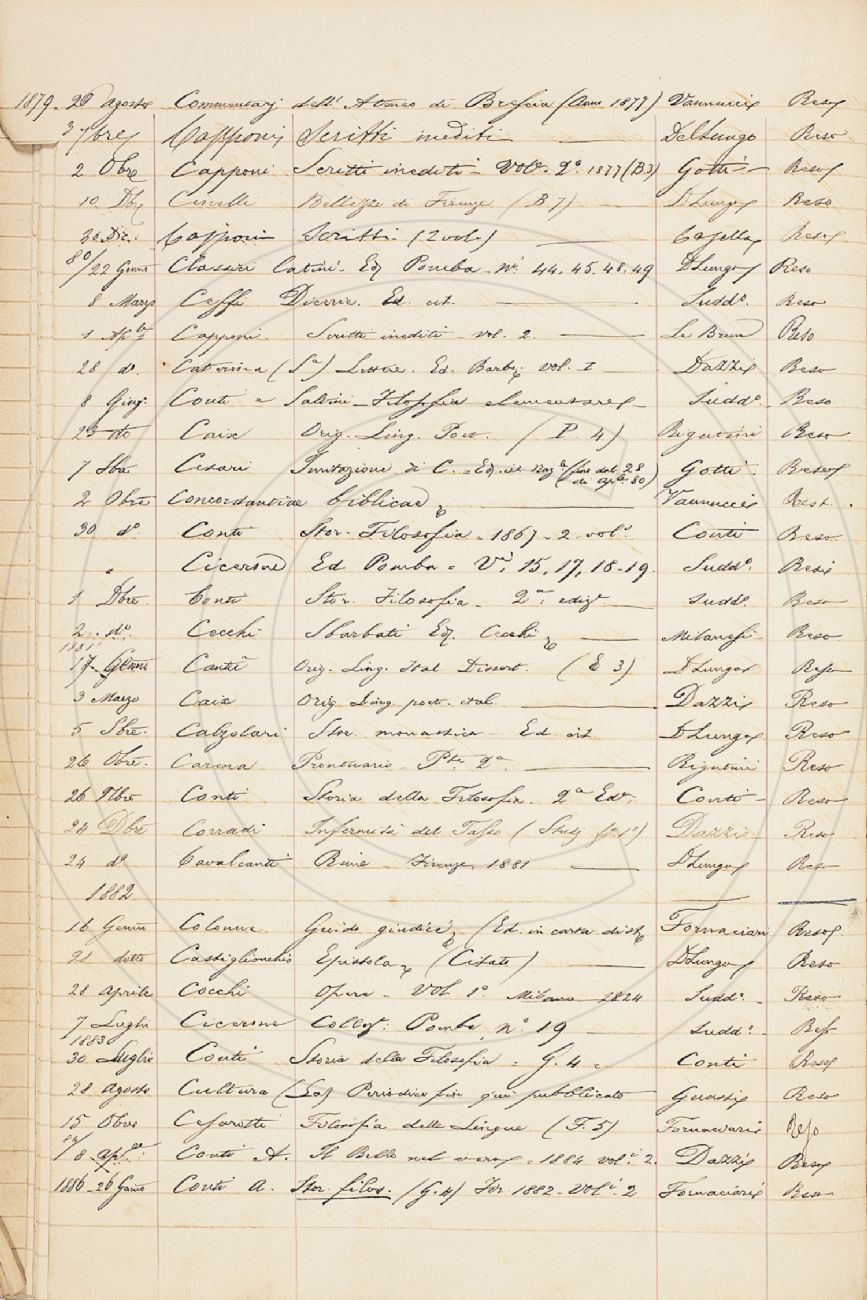 1879. 26 Agosto Commentarj dell' Ateneo di Brescia (Anno 1877) Vannucci Reso
3 7bre Capponi Scritti inediti — Del Lungo Reso
2 Obre Capponi Scritti inediti - Vol. 2º 1877 (B3) Gotti Reso
10 Dbre Cinelli Bellezze di Firenze (B 7) — D Lungo Reso
30 Dic. Capponi Scritti (2 vol.) — Reso
80/22 Genn Classici latini - Ed Pomba - nⁱ 44, 45, 48, 49 D Lungo Reso
8 Marzo Ceffi Dicerie. Ed. cit. — Suddº. Reso
1 Capponi. Scritti inediti - vol. 2 — Le Brun Reso
28 dº. Caterina (Sª) Lettere. Ed. Barbᵃ vol. I — Dazzi Reso
8 Giugº Conti e Salvini - Filosofia elementare — Suddº. Reso
23 dto Caix Orig. Ling. Poet. (P. 4) Rigutini Reso
7 Sbre Cesari Imitazione di C. - Ed. cit (fino dal 28 di Apr. 80) Gotti Reso
2 Obre Concordantiae biblicae — Vannucci Rest.
30 dº. Conti Stor. Filosofia - 1867 - 2 volⁱ Conti Reso
" Cicerone Ed Pomba - Vⁱ. 15, 17, 18-19. Suddº. Resi
1 Dbre. Conti Stor. Filosofia - 2ª. edizᵉ — Suddº. Reso
2. dº. Cecchi Sbarbati Ed. Cecchi — Milanesi Reso
1881
17 Genn Cantù Orig. Ling. Ital Dissert. (E 3) D Lungo Reso
3 Marzo Caix Orig Ling poet. ital. — Dazzi Reso
5 Sbre. Calzolari Stor. monastica - Ed cit D Lungo Reso
26 Obre. Carena Prontuario - Pte. 2ª — Rigutini Reso
26 9bre Conti Storia della Filosofia. 2ª Edᵉ. Conti - Reso
24 Dbre Corradi Infermità del Tasso Dazzi Reso
24 dº Cavalcanti Rime - Firenze, 1881 — D Lungo Reso
1882
16 Genn Colonne Guido giudice (Ed. in carta dist) Fornaciari Reso
21 detto Castiglionchio Epistola (Citate) — D Lungo Reso
28 Aprile Cocchi Opere - Vol 1º. Milano 1824 Suddº - Reso
7 Luglio Cicerone Collez. Pomba nº 19 — Suddº - Reso
1883
30 Luglio Conti Storia della Filosofia - G. 4 - Conti Reso
28 Agosto Cultura (La) Periodico fin qui pubblicato Guasti Reso
15 Obre Cesarotti Filosofia delle Lingue (F. 5) Fornaciari Reso
84/
8 aple Conti A. Il Bello nel vero - 1884 volⁱ 2. Dazzi Reso
1886 26 Genno Conti A. Stor. filos. (G. 4) Fir. 1882 - Volⁱ 2 Fornaciari Reso